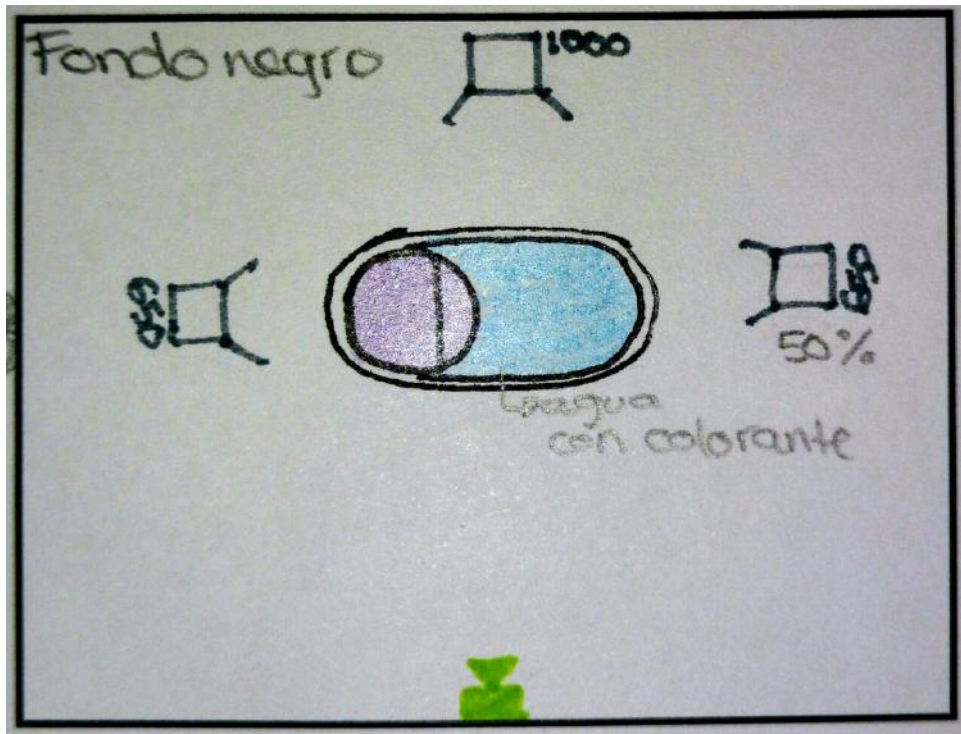 Fondo negro
1000
650
650
50%
agua
con colorante